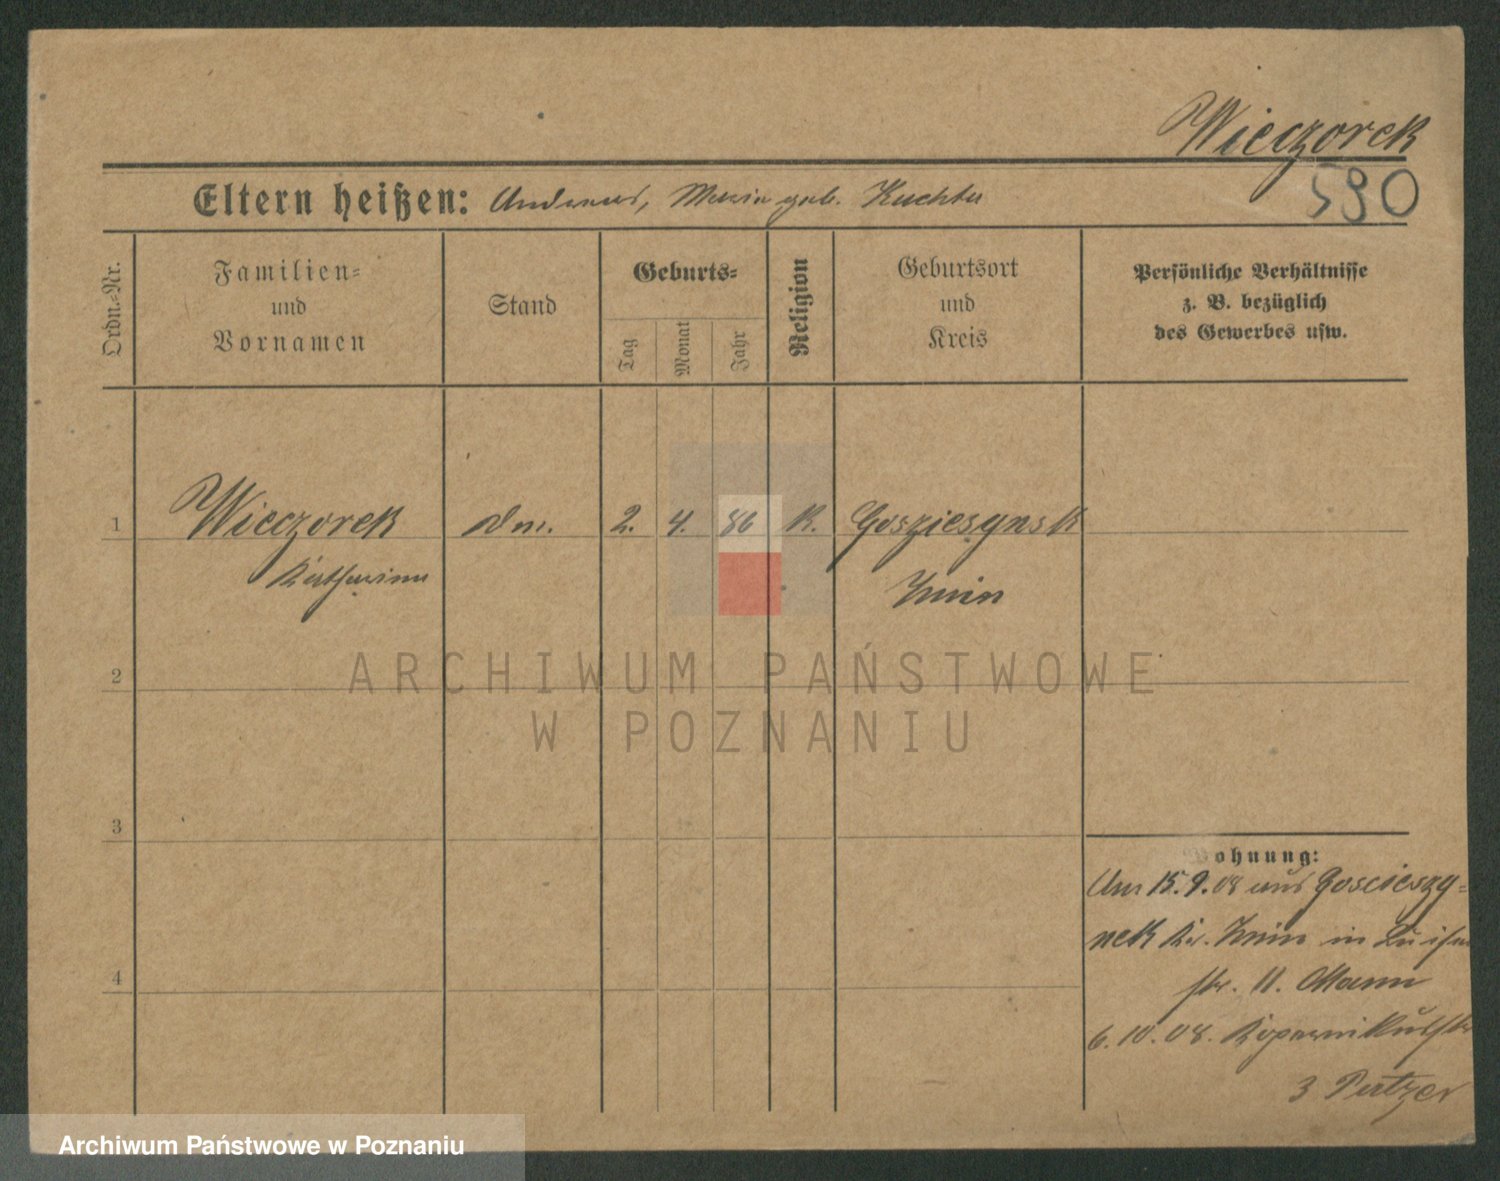 Wieczorek
590
Eltern heißen: Andreas, Maria geb. Kuchta
Ordn.-Nr.
Familien-
und
Vornamen
Stand
Geburts-
Tag
Monat
Jahr
Religion
Geburtsort
und
Kreis
Persönliche Verhältnisse
z. B. bezüglich
des Gewerbes usw.
1 Wieczorek 2. 4. 86 K. Gosziesynsk
Katharina Znin
2
3
4
Wohnung:
Am 15.9.08 aus Goscieszy-
nek Kr. Znin in Luisen
str. 11. Mann
6.10.08. Kopernikusstr
3 Pertzer
ARCHIWUM PAŃSTWOWE
W POZNANIU
Archiwum Państwowe w Poznaniu